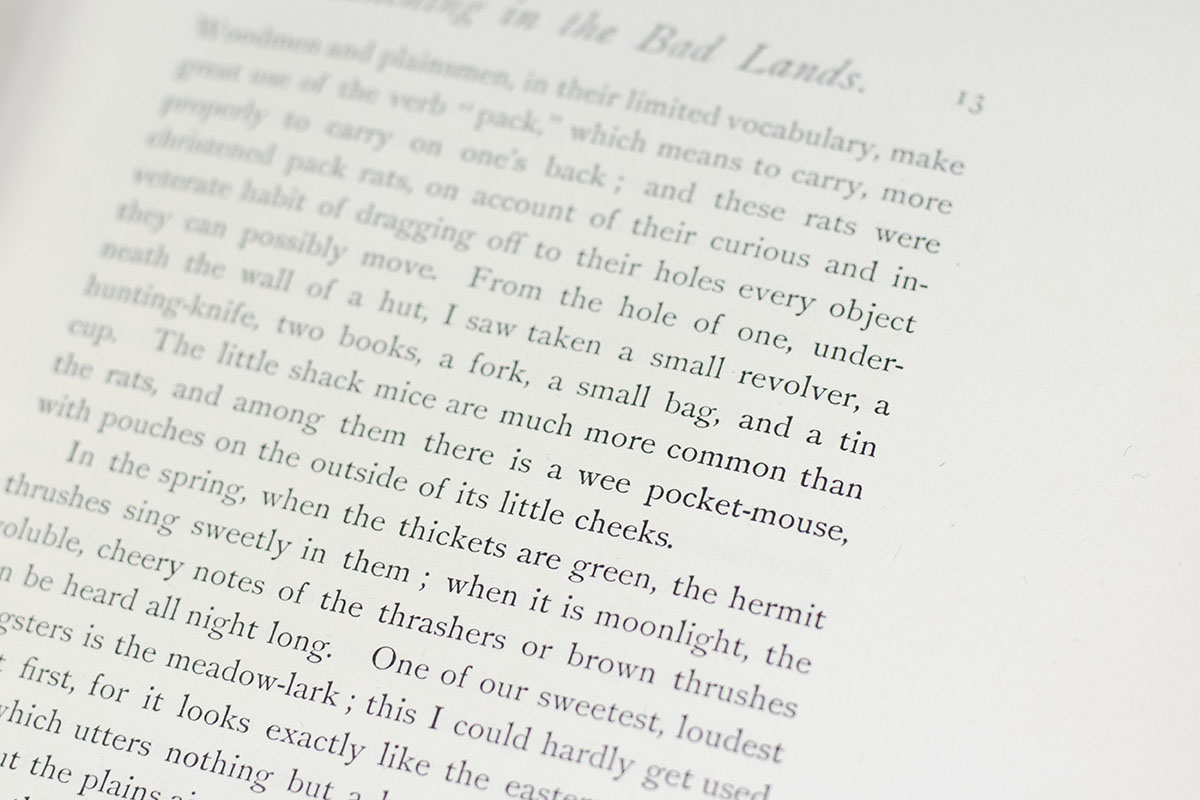 in the Bad Lands.
13
Woodmen and plainsmen, in their limited vocabulary, make
great use of the verb "pack," which means to carry, more
properly to carry on one's back; and these rats were
christened pack rats, on account of their curious and in-
veterate habit of dragging off to their holes every object
they can possibly move. From the hole of one, under-
neath the wall of a hut, I saw taken a small revolver, a
hunting-knife, two books, a fork, a small bag, and a tin
cup. The little shack mice are much more common than
the rats, and among them there is a wee pocket-mouse,
with pouches on the outside of its little cheeks.
In the spring, when the thickets are green, the hermit
thrushes sing sweetly in them; when it is moonlight, the
voluble, cheery notes of the thrashers or brown thrushes
n be heard all night long. One of our sweetest, loudest
gsters is the meadow-lark; this I could hardly get used
t first, for it looks exactly like the easte
which utters nothing but a
ut the plains